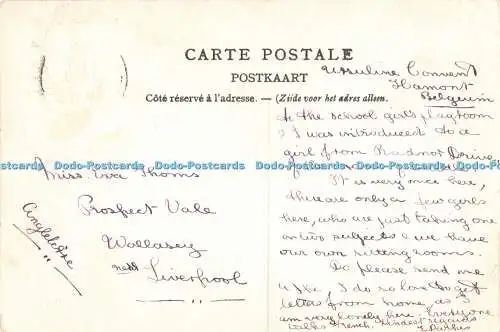 CARTE POSTALE
POSTKAART
Côté réservé à l'adresse. — (Zijde voor het adres alleen.
Ursuline Convent
Hamont
Belgium
Miss Eva Thoms
Prospect Vale
Wallasey
near Liverpool
Angleterre
of the school girl's playroom
I was introduced to a
girl from Radnor Drive
It is very nice here,
there are only a few girls
here, who are just taking one
or two subjects & we have
our own sitting rooms.
Do please send me
a p.c., I do so long to get
letters from home, as I
am very lonely here. Everyone
talks French. Kindest regards
Dodo-Postcards Dodo-Postcards Dodo-Postcards Dodo-Postcards Dodo-Postcards